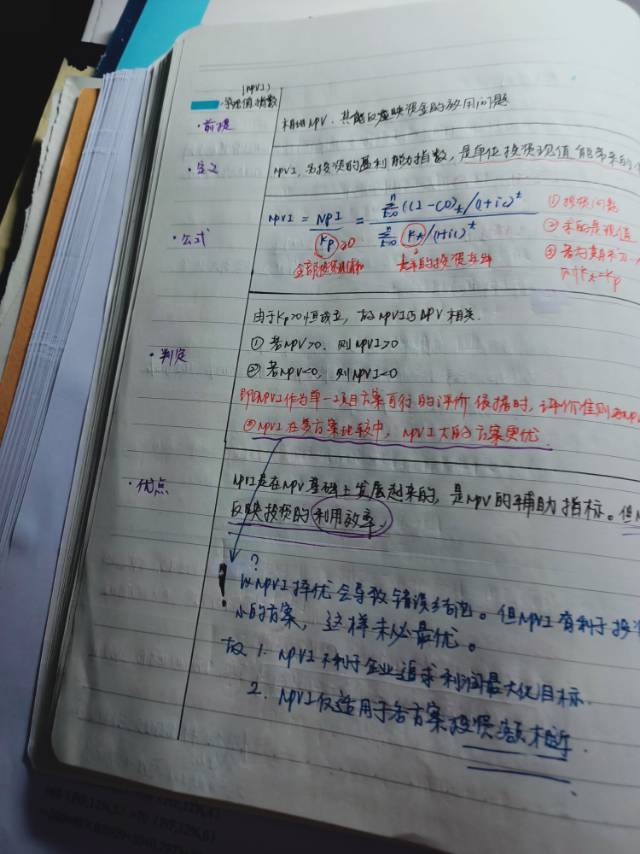 (NPVI)
净现值指数
·前提
利用NPV,其能反应映资金的效用问题
·定义
NPVI,为投资的盈利能力指数,是单位投资现值能带来的
·公式
NPVI = NPI/Kp = Σ(CI-CO)t/(1+ic)^t / ΣKt/(1+ic)^t
n t=0
n t=0
>0
全部投资现值和
未来的投资
① 投资问题
② 求的是现值
③ 若
则Kt=Kp
由于Kp>0恒成立,故NPVI与NPV相关.
·判定
① 若NPV>0,则NPVI>0
② 若NPV<0,则NPVI<0
即NPVI作为单一项目方案可行的评价依据时,评价准则
③NPVI在多方案比较中,NPVI大的方案更优.
·优点
NPVI是在NPV基础上发展起来的,是NPV的辅助指标。但
反映投资的利用效率.
?
! 以NPVI择优会导致错误结论。但NPVI有利于投
小的方案,这样未必最优。
故 1. NPVI不利于企业追求利润最大化目标.
2. NPVI仅适用于各方案投资额相近.